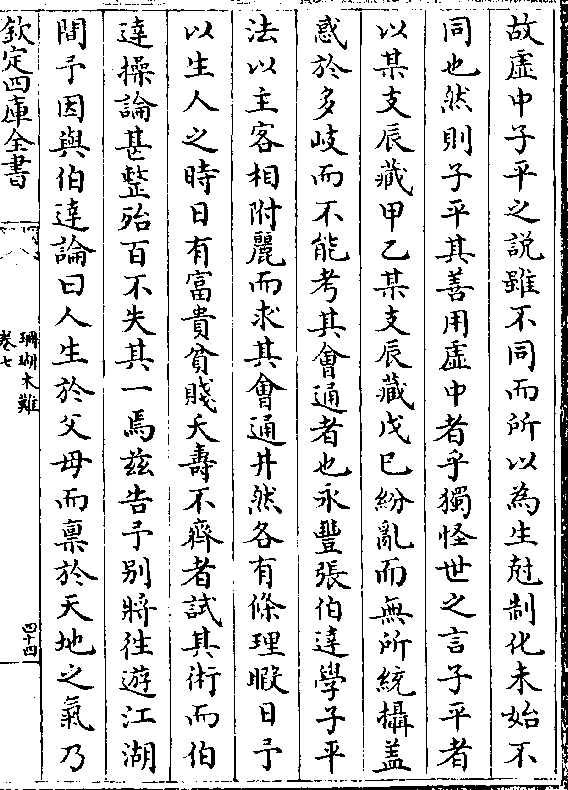 故虚中子平之說雖不同而所以為生尅制化未始不
同也然則子平其善用虚中者乎獨怪世之言子平者
以某支辰藏甲乙某支辰藏戊已紛亂而無所統攝盖
惑於多岐而不能考其會通者也永豐張伯達學子平
法以主客相附麗而求其會通井然各有條理暇日予
以生人之時日有富貴貧賤夭壽不齊者試其術而伯
達操論甚整殆百不失其一焉兹告予别將徃遊江湖
間予因與伯達論曰人生於父母而禀於天地之氣乃
欽定四庫全書
珊瑚木難
卷七
四十四